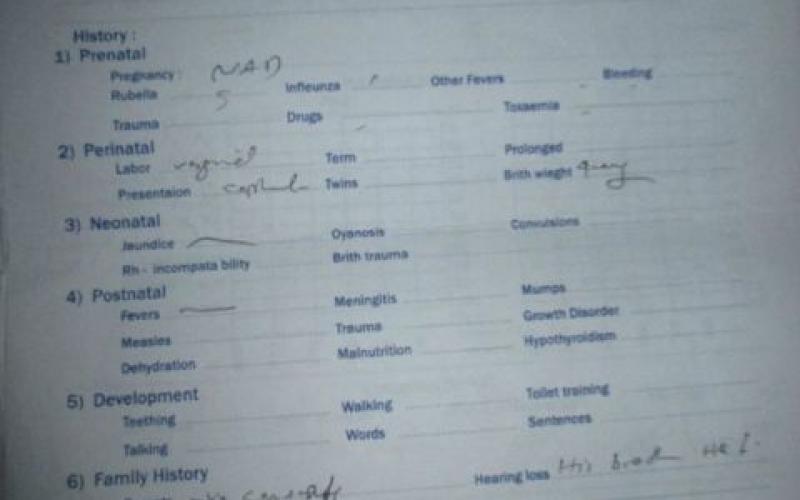 History :
1) Prenatal
Pregnancy : NAD
Rubella Infleunza Other Fevers Bleeding
Trauma Drugs Toxaemia
2) Perinatal
Labor Term Prolonged
Presentaion Twins Brith wieght
3) Neonatal
Jaundice Oyanosis Convulsions
Rh - incompata bility Brith trauma
4) Postnatal
Fevers Meningitis Mumps
Measles Trauma Growth Disorder
Dehydration Malnutrition Hypothyroidism
5) Development
Teething Walking Toilet training
Talking Words Sentences
6) Family History Hearing loss His